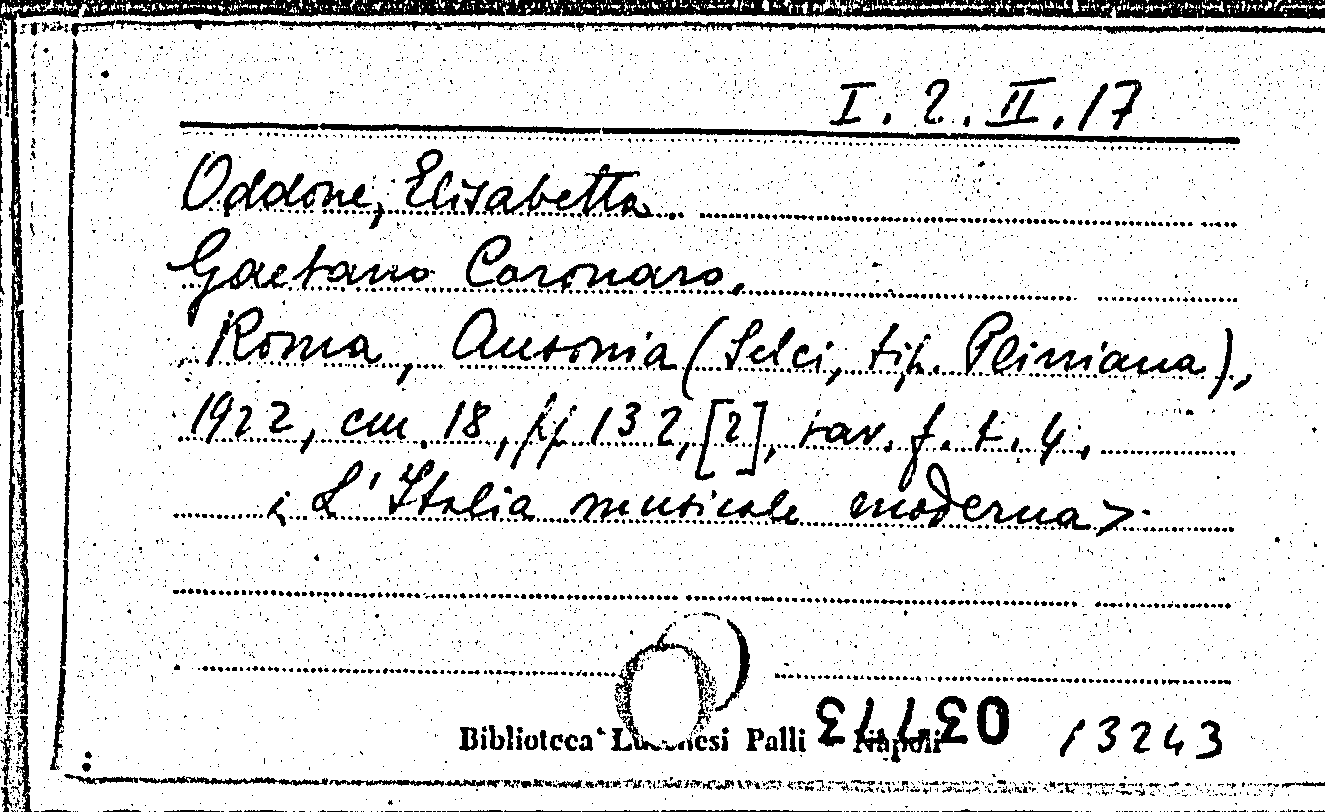 I. 2. II. 17
Oddone, Elisabetta.
Gaetano Coronaro.
Roma, Ausonia (Selci, tip. Pliniana),
1922, cm. 18, pp 132, [2], tav. f. t. 4.
< L'Italia musicale moderna >
Biblioteca Lucchesi Palli Napoli 13243